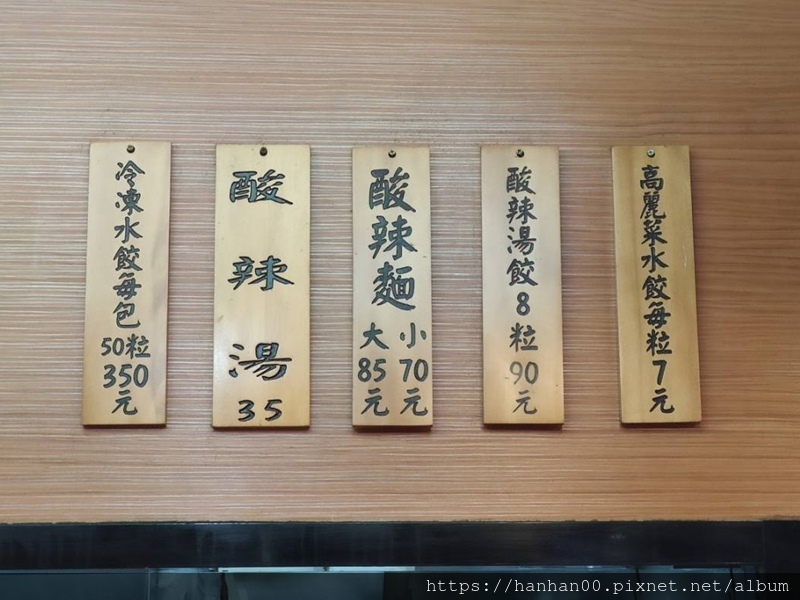 高麗菜水餃每粒7元
酸辣湯餃8粒90元
酸辣麵
小70元
大85元
酸辣湯35
冷凍水餃每包
50粒
350
元
https://hanhan00.pixnet.net/album